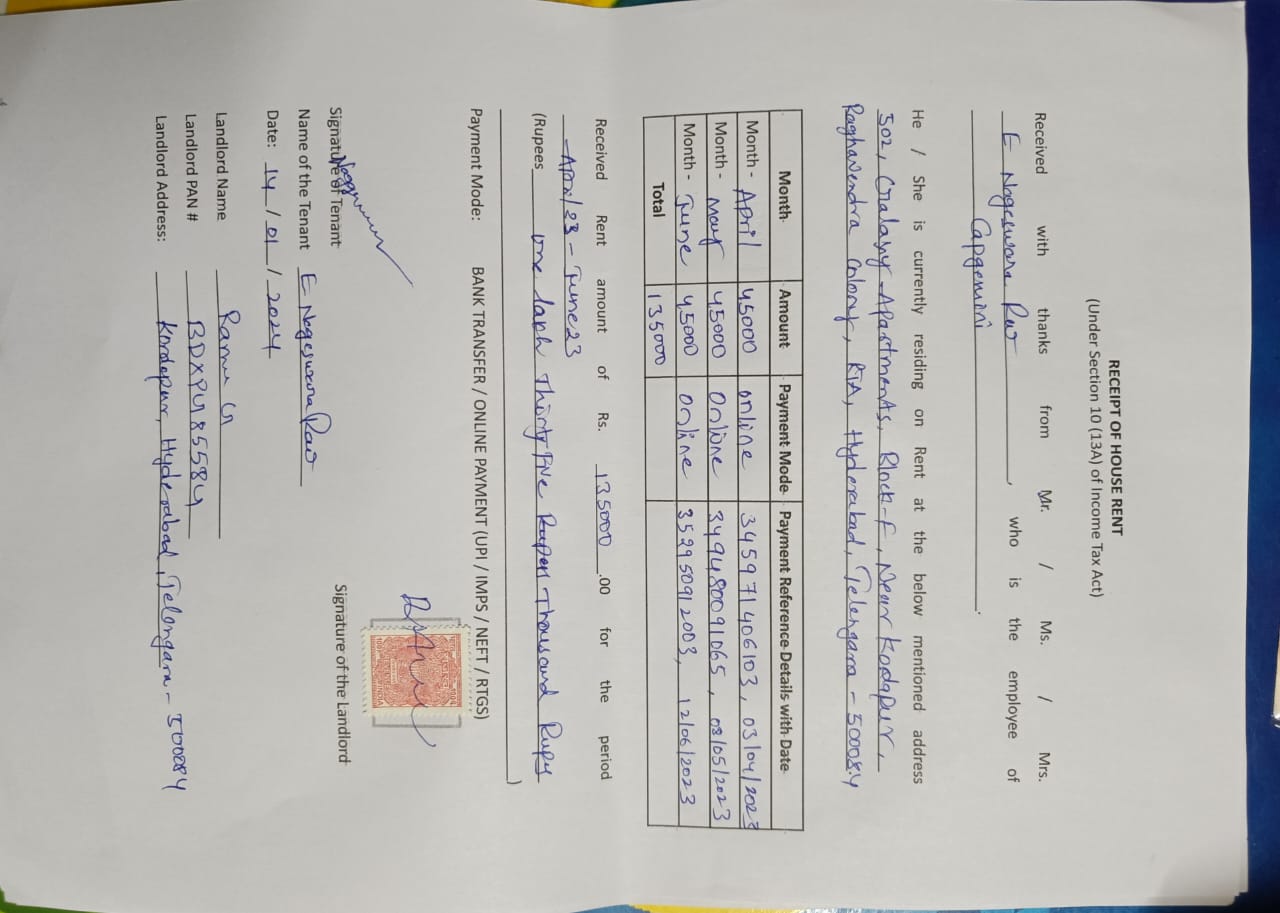 RECEIPT OF HOUSE RENT
(Under Section 10 (13A) of Income Tax Act)
Received with thanks from Mr. / Ms. / Mrs.
E Nageswara Rao, who is the employee of
Capgemini.
He / She is currently residing on Rent at the below mentioned address
502, Gralaxy Apartments, Block-F, Near Kondapur,
Raghavendra Colony, RTA, Hyderabad, Telengana - 500084
Month Amount Payment Mode Payment Reference Details with Date
Month - April 45000 online 345971406103, 03/04/2023
Month - May 45000 Online 349480091065, 08/05/2023
Month - June 45000 Online 352950912003, 12/06/2023
Total 135000
Received Rent amount of Rs. 135000.00 for the period
April 23 - June 23
(Rupees one lakh Thirty Five Rupees Thousand Rupy
)
Payment Mode: BANK TRANSFER / ONLINE PAYMENT (UPI / IMPS / NEFT / RTGS)
REVENUE
INDIA
Signature of Tenant
Signature of the Landlord
Name of the Tenant E Nageswara Rao
Date: 14/01/2024
Landlord Name Ramu G
Landlord PAN #
Landlord Address: Kondapur, Hyderabad, Telengana - 500084